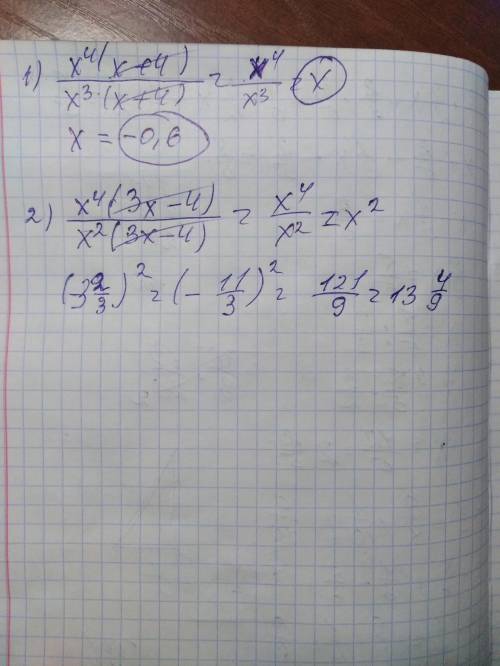 1) x⁴(x+4) / x³·(x+4) = x⁴ / x³ = x
x = -0,6
2) x⁴(3x-4) / x²(3x-4) = x⁴ / x² = x²
(3 2/3)² = (- 11/3)² = 121/9 = 13 4/9